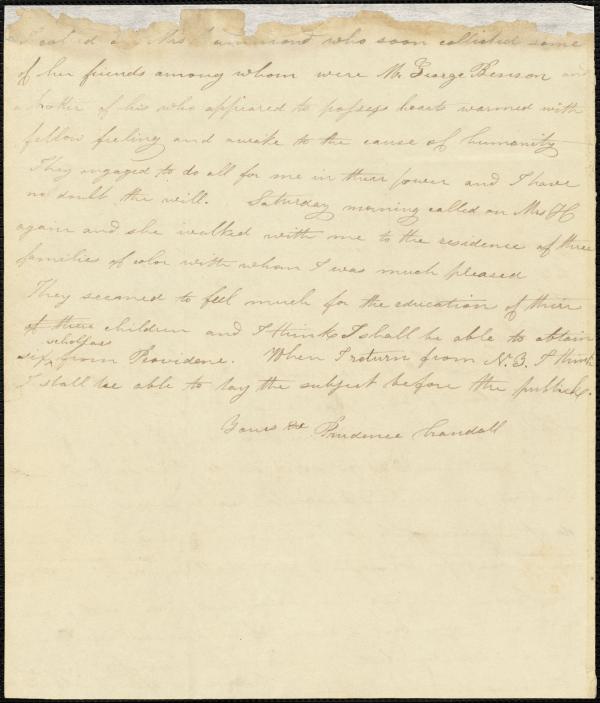 I called on Mrs Hammond who soon collected some
of her friends among whom were Mr George Benson and
a brother of his who appeared to possess hearts warmed with
fellow feeling and awake to the cause of humanity
They engaged to do all for me in their power and I have
no doubt the will. Saturday morning called on Mrs H
again and she walked with me to the residence of three
families of color with whom I was much pleased
They seamed to feel much for the education of their
of their children and I think I shall be able to obtain
six scholars from Providence. When I return from N.B. I think
I shall be able to lay the subject before the public.
Yours &c. Prudence Crandall